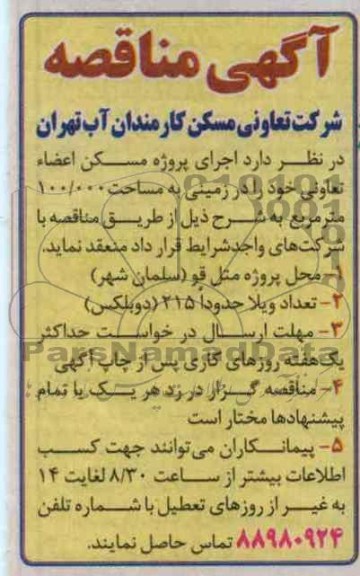 آگهی مناقصه
شرکت تعاونی مسکن کارمندان آب تهران
در نظر دارد اجرای پروژه مسکن اعضاء
تعاونی خود را در زمینی به مساحت ۱۰۰/۰۰۰
مترمربع به شرح ذیل از طریق مناقصه با
شرکت‌های واجدشرایط قرار داد منعقد نماید.
۱- محل پروژه متل قو (سلمان شهر)
۲- تعداد ویلا حدوداً ۲۱۵ (دوبلکس)
۳- مهلت ارسال در خواست حداکثر
یک‌هفته روزهای کاری پس از چاپ آگهی
۴- مناقصه گزار در رد هر یک یا تمام
پیشنهادها مختار است
۵- پیمانکاران می‌توانند جهت کسب
اطلاعات بیشتر از ساعت ۸/۳۰ لغایت ۱۴
به غیر از روزهای تعطیل با شماره تلفن
۸۸۹۸۰۹۲۴ تماس حاصل نمایند.
ParsNamadData